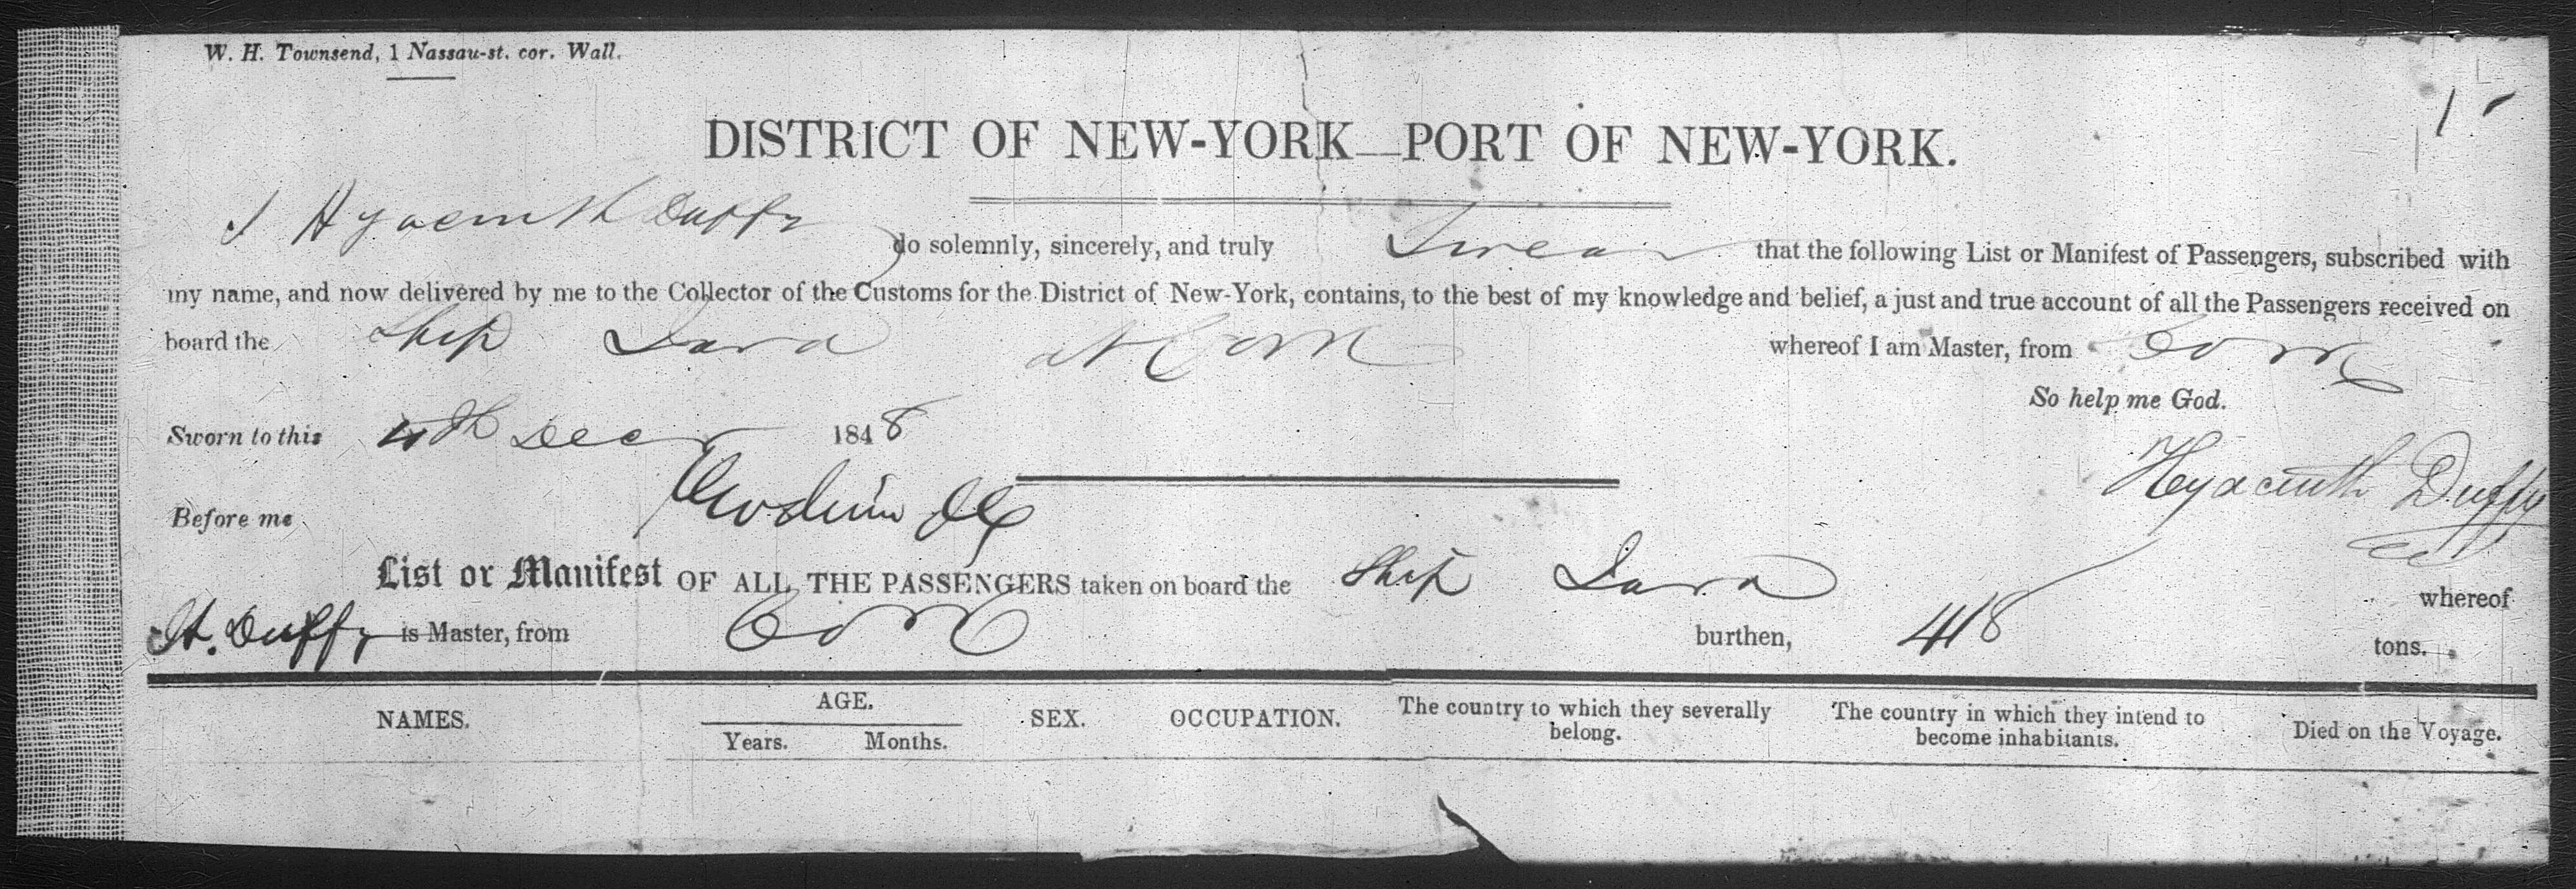 W. H. Townsend, 1 Nassau-st. cor. Wall.
DISTRICT OF NEW-YORK—PORT OF NEW-YORK.
I Hyacinth Duffy do solemnly, sincerely, and truly Swear that the following List or Manifest of Passengers, subscribed with
my name, and now delivered by me to the Collector of the Customs for the District of New-York, contains, to the best of my knowledge and belief, a just and true account of all the Passengers received on
board the Ship at Cork whereof I am Master, from Cork
So help me God.
Sworn to this 4th Dec 1848
Hyacinth Duffy
Before me
List or Manifest OF ALL THE PASSENGERS taken on board the Ship whereof
H. Duffy is Master, from Cork burthen, 418 tons.
NAMES. AGE. SEX. OCCUPATION. The country to which they severally belong. The country in which they intend to become inhabitants. Died on the Voyage.
Years. Months.